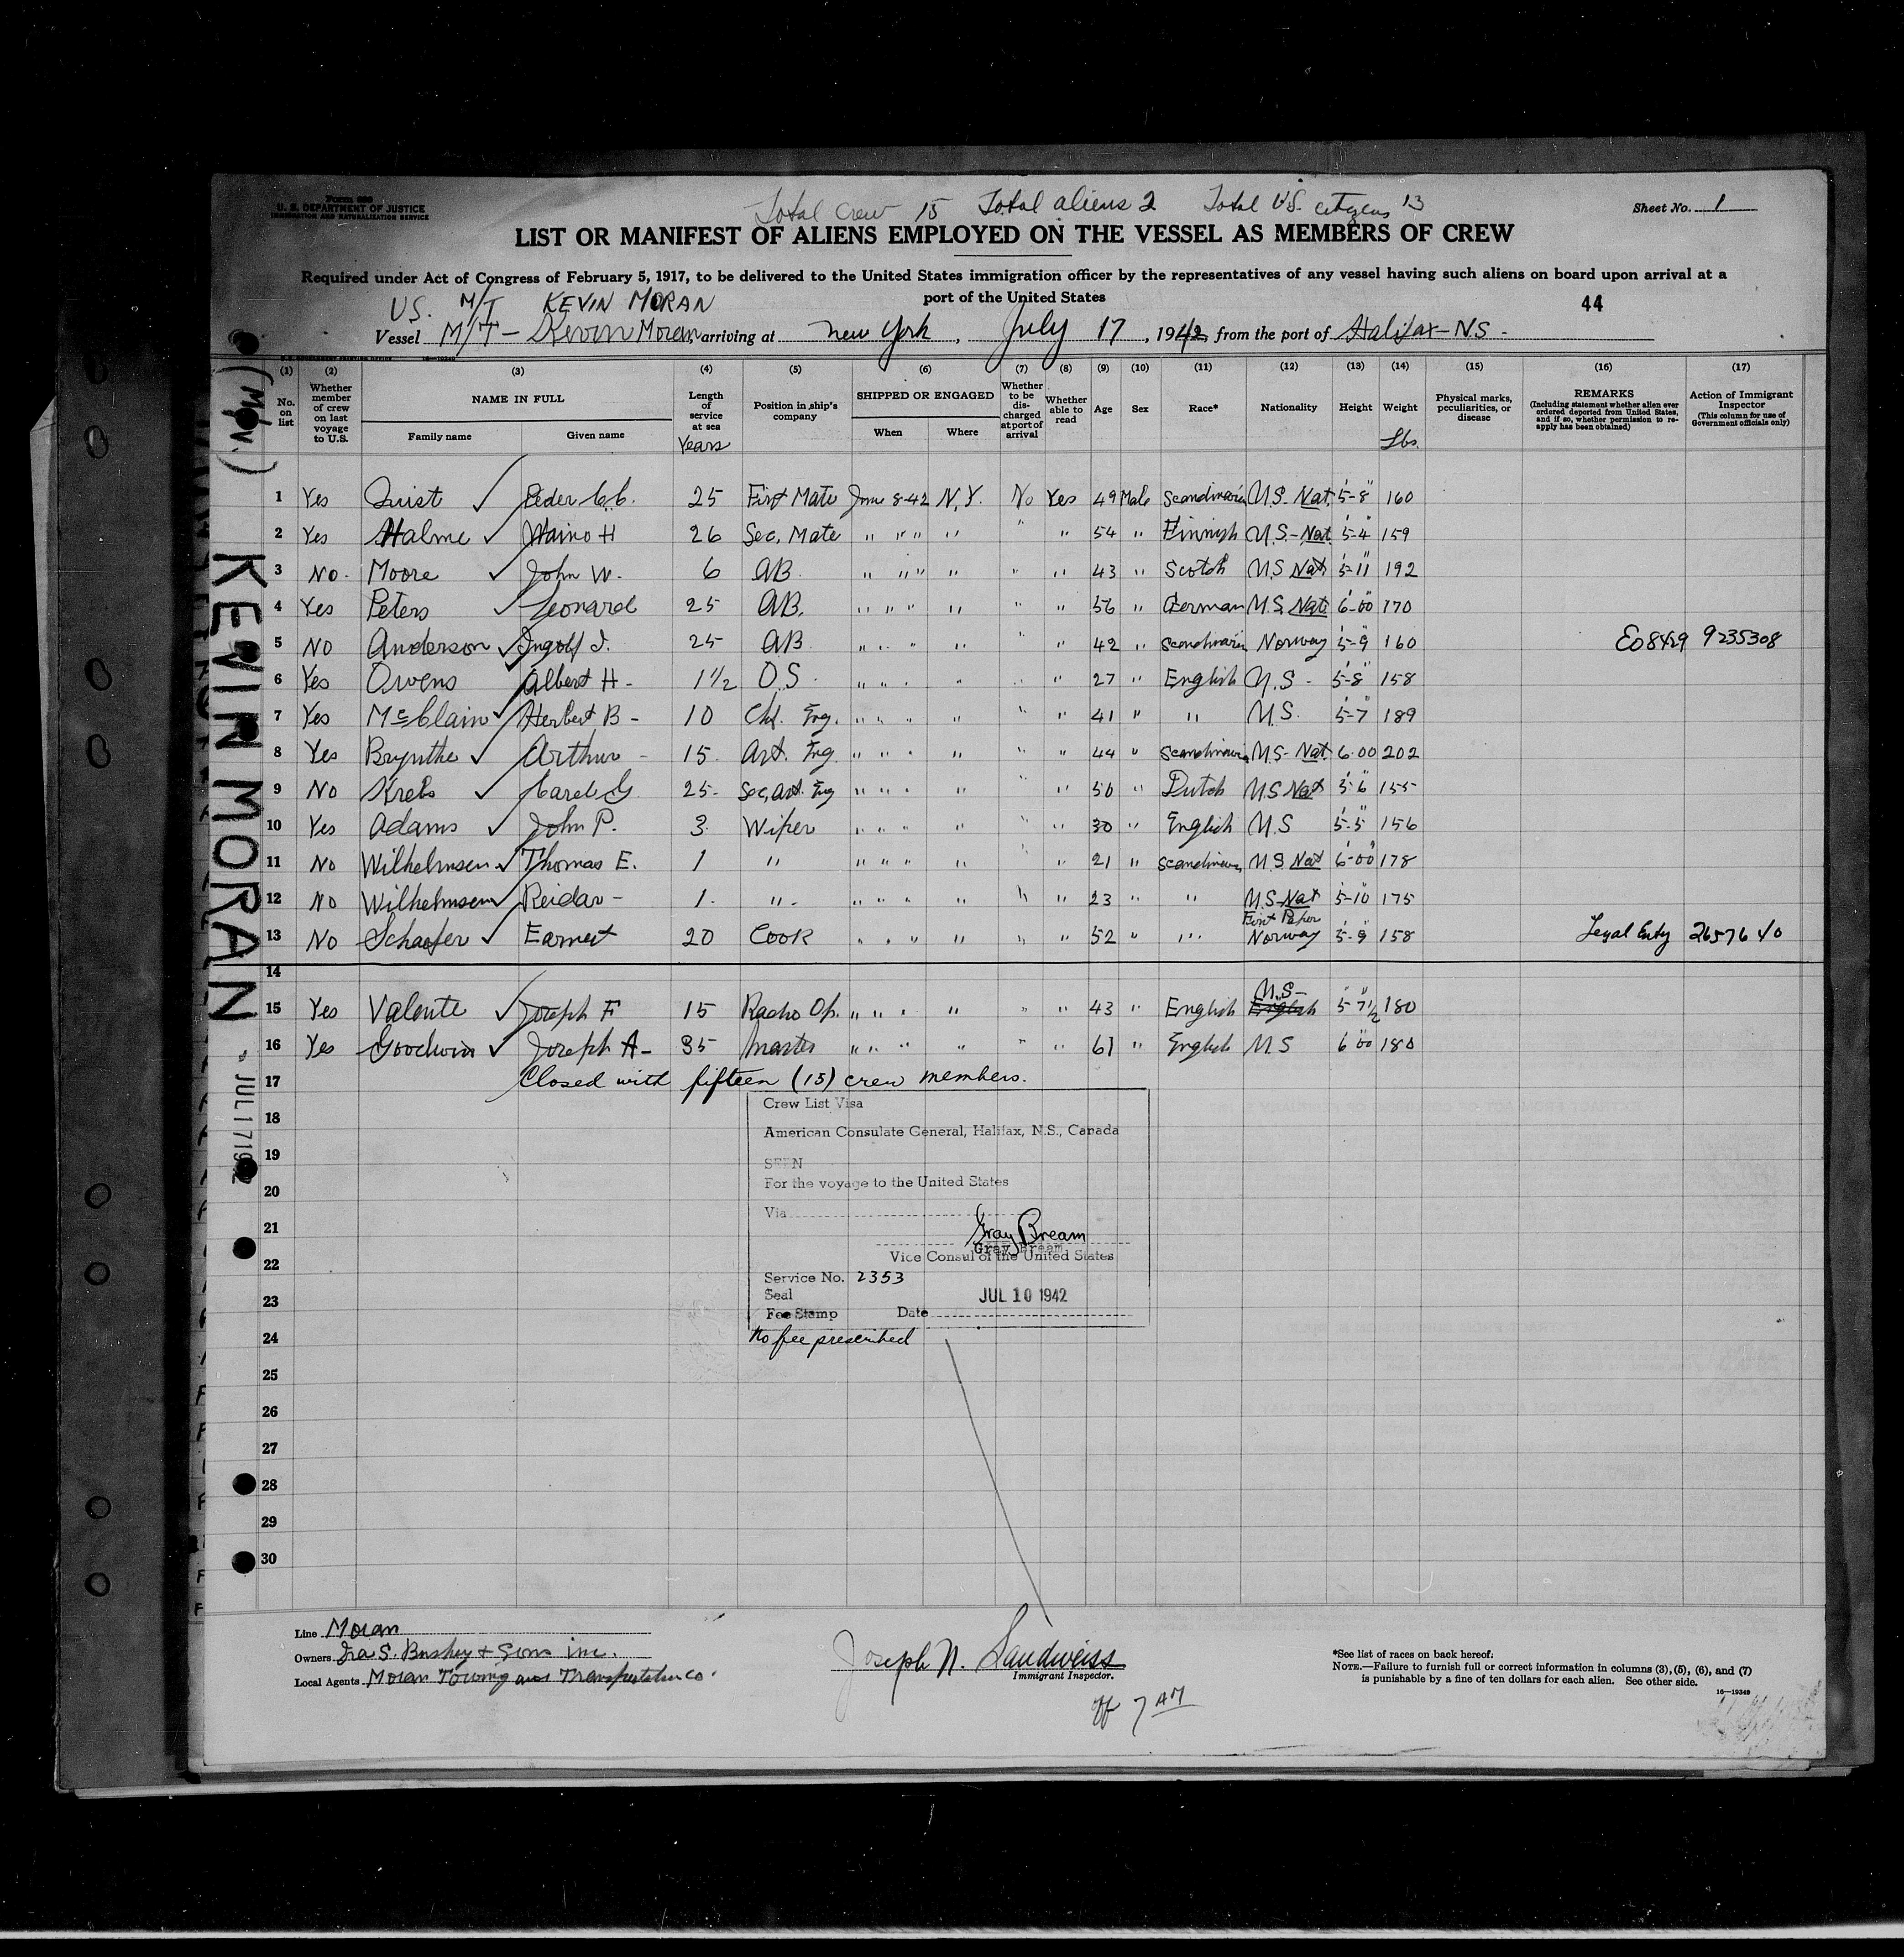 Form 689
U. S. DEPARTMENT OF JUSTICE
IMMIGRATION AND NATURALIZATION SERVICE
Total crew 15 Total aliens 2 Total U.S. citizens 13
Sheet No. 1
LIST OR MANIFEST OF ALIENS EMPLOYED ON THE VESSEL AS MEMBERS OF CREW
Required under Act of Congress of February 5, 1917, to be delivered to the United States immigration officer by the representatives of any vessel having such aliens on board upon arrival at a
port of the United States
44
US. M/T KEVIN MORAN
Vessel M/T - Kevin Moran, arriving at New York, July 17, 1942, from the port of Halifax - N.S -
(1) (2) (3) (4) (5) (6) (7) (8) (9) (10) (11) (12) (13) (14) (15) (16) (17)
No. on list
Whether member of crew on last voyage to U.S.
NAME IN FULL
Family name Given name
Length of service at sea
Years
Position in ship's company
SHIPPED OR ENGAGED
When Where
Whether to be discharged at port of arrival
Whether able to read
Age
Sex
Race*
Nationality
Height
Weight
Lbs.
Physical marks, peculiarities, or disease
REMARKS
(Including statement whether alien ever ordered deported from United States, and if so, whether permission to reapply has been obtained)
Action of Immigrant Inspector
(This column for use of Government officials only)
1 Yes Quist ✓ Peder C.C. 25 First Mate 8-42 N.Y. No Yes 49 Male Scandinavian U.S. Nat. 5-8" 160
2 Yes Halme ✓ Waino H 26 Sec. Mate " " " " " " 54 " Finnish U.S.-Nat. 5-4" 159
3 No. Moore ✓ John W. 6 AB. " " " " " " 43 " Scotch U.S. Nat 5-11" 192
4 Yes Peters ✓ Leonard 25 AB. " " " " " " 56 " German U.S. Nat. 6-00" 170
5 No Anderson ✓ Ingolf J. 25 AB " " " " " " 42 " Scandinavian Norway 5-9" 160 EO8429 9235308
6 Yes Owens Albert H - 1 1/2 O.S. " " " " " " 27 " English U.S - 5-8" 158
7 Yes McClain ✓ Herbert B - 10 Chf. Eng. " " " " " " 41 " " U.S. 5-7" 189
8 Yes Brynthe ✓ Arthur - 15. Ast. Eng. " " " " " " 44 " Scandinavian U.S. Nat. 6-00 202
9 No Krebs ✓ Carel G. 25- Sec. Ast. Eng " " " " " " 50 " Dutch U.S Nat 5-6" 155
10 Yes Adams ✓ John P. 3. Wiper " " " " " " 30 " English U.S 5-5" 156
11 No Wilhelmsen ✓ Thomas E. 1 " " " " " " " 21 " Scandinavian U.S Nat 6-00" 178
12 No Wilhelmsen ✓ Reidar - 1. " - " " " " " " 23 " " U.S-Nat 5-10" 175
First Paper
13 No Schaefer ✓ Earnest 20 Cook " " " " " " 52 " " Norway 5-9" 158 Legal Enty 2657640
14
15 Yes Valente ✓ Joseph F 15 Radio Op. " " " " " " 43 " English U.S- English 5-7 1/2" 180
16 Yes Goodwin ✓ Joseph A - 35 Master " " " " " " 61 " English U.S 6 00 180
17 Closed with fifteen (15) crew members.
18
19
20
21
22
23
24
25
26
27
28
29
30
Crew List Visa
American Consulate General, Halifax, N.S., Canada
SEEN
For the voyage to the United States
Via
Gray Bream
Gray Bream
Vice Consul of the United States
Service No. 2353
Seal JUL 10 1942
Fee Stamp Date
No fee prescribed
(Mov.) KEVIN MORAN
JUL 17 1942
Line Moran
Owners Ira S. Bushey & Sons inc.
Local Agents Moran Towing and Transportation Co.
Joseph N. Sandweiss
Immigrant Inspector.
7 AM
*See list of races on back hereof.
NOTE.—Failure to furnish full or correct information in columns (3), (5), (6), and (7)
is punishable by a fine of ten dollars for each alien. See other side.
16—19349